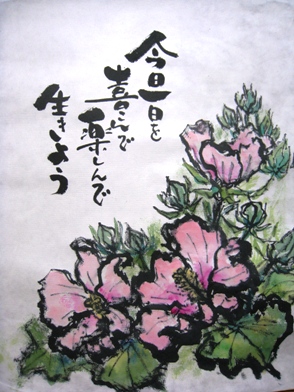 今日一日を
喜こんで
楽しんで
生きよう